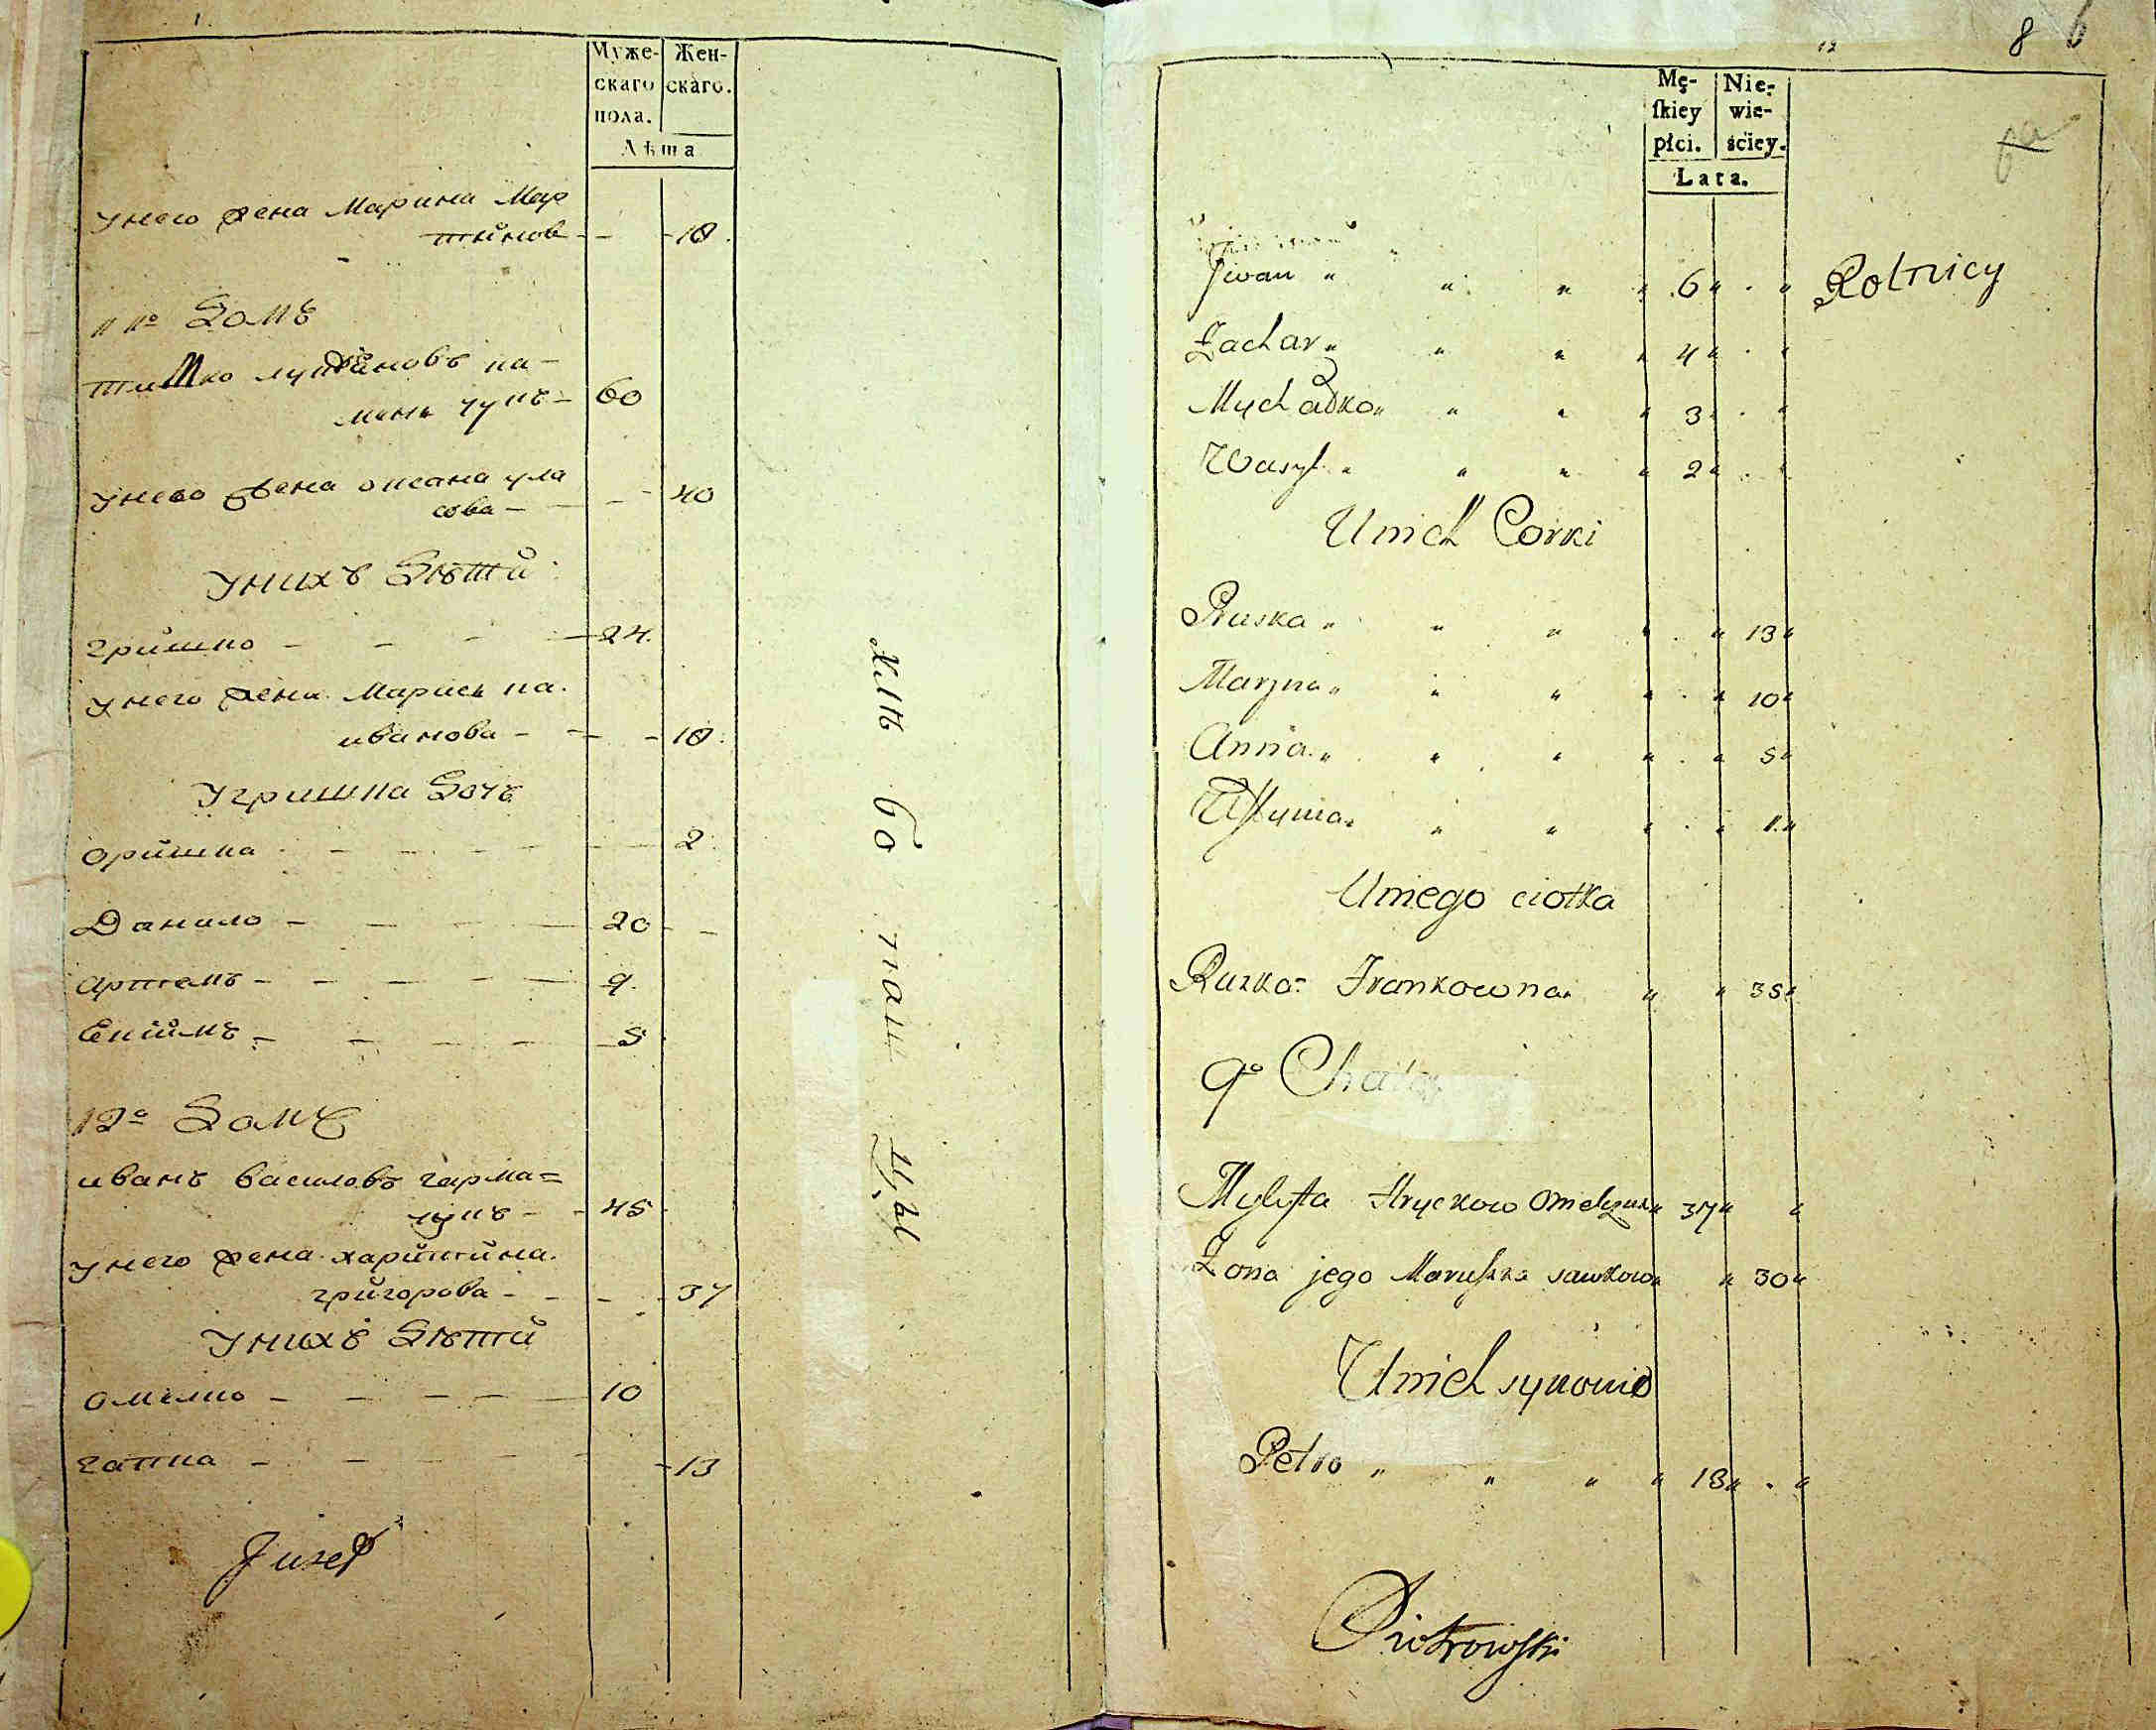 Муже-
скаго
пола.
Жен-
скаго.
Лѣта
унего жена Марина Мар
тинов - - 18.
11º Домъ
Тишко лукяновъ па-
60
унего жена оксана ула
сова - - 40
унихъ Дѣти
гришко - - - 24.
унего жена Марися па.
иванова - - 18.
угришка Дочь
оришка - - - 2.
Данило - - - 20 -
артемъ - - - 9.
Єпимъ - - - 5
12º Домъ
иванъ василовъ гарма=
лукъ - 45
унего жена харитина.
григорова - - 37
унихъ Дѣти
омелко - - - 10
гапка - - - 13
Juzef
хлѣ бо паш цы
12
8 6
Mę-
ſkiey
płci.
Nie-
wie-
ściey.
Lata.
Jwan " " " " 6 " . " Rolnicy
Zachar " " " " 4 " . "
Mychałko " " " " 3 " . "
Wasyl " " " " 2 " . "
Unich Corki
Ruska " " " " . " 13 "
Maryna " " " " . " 10 "
Anna " " " " . " 5 "
" " " " . " 1 "
Uniego ciotka
Ruzka Jwankowna " " " 35 "
9º Chata
Mykyta Hryckow " 37 " "
Zona jego Maruszka sawkowa " 30 "
Unich synowie
Petro " " " " 13 " . "
Piotrowſki